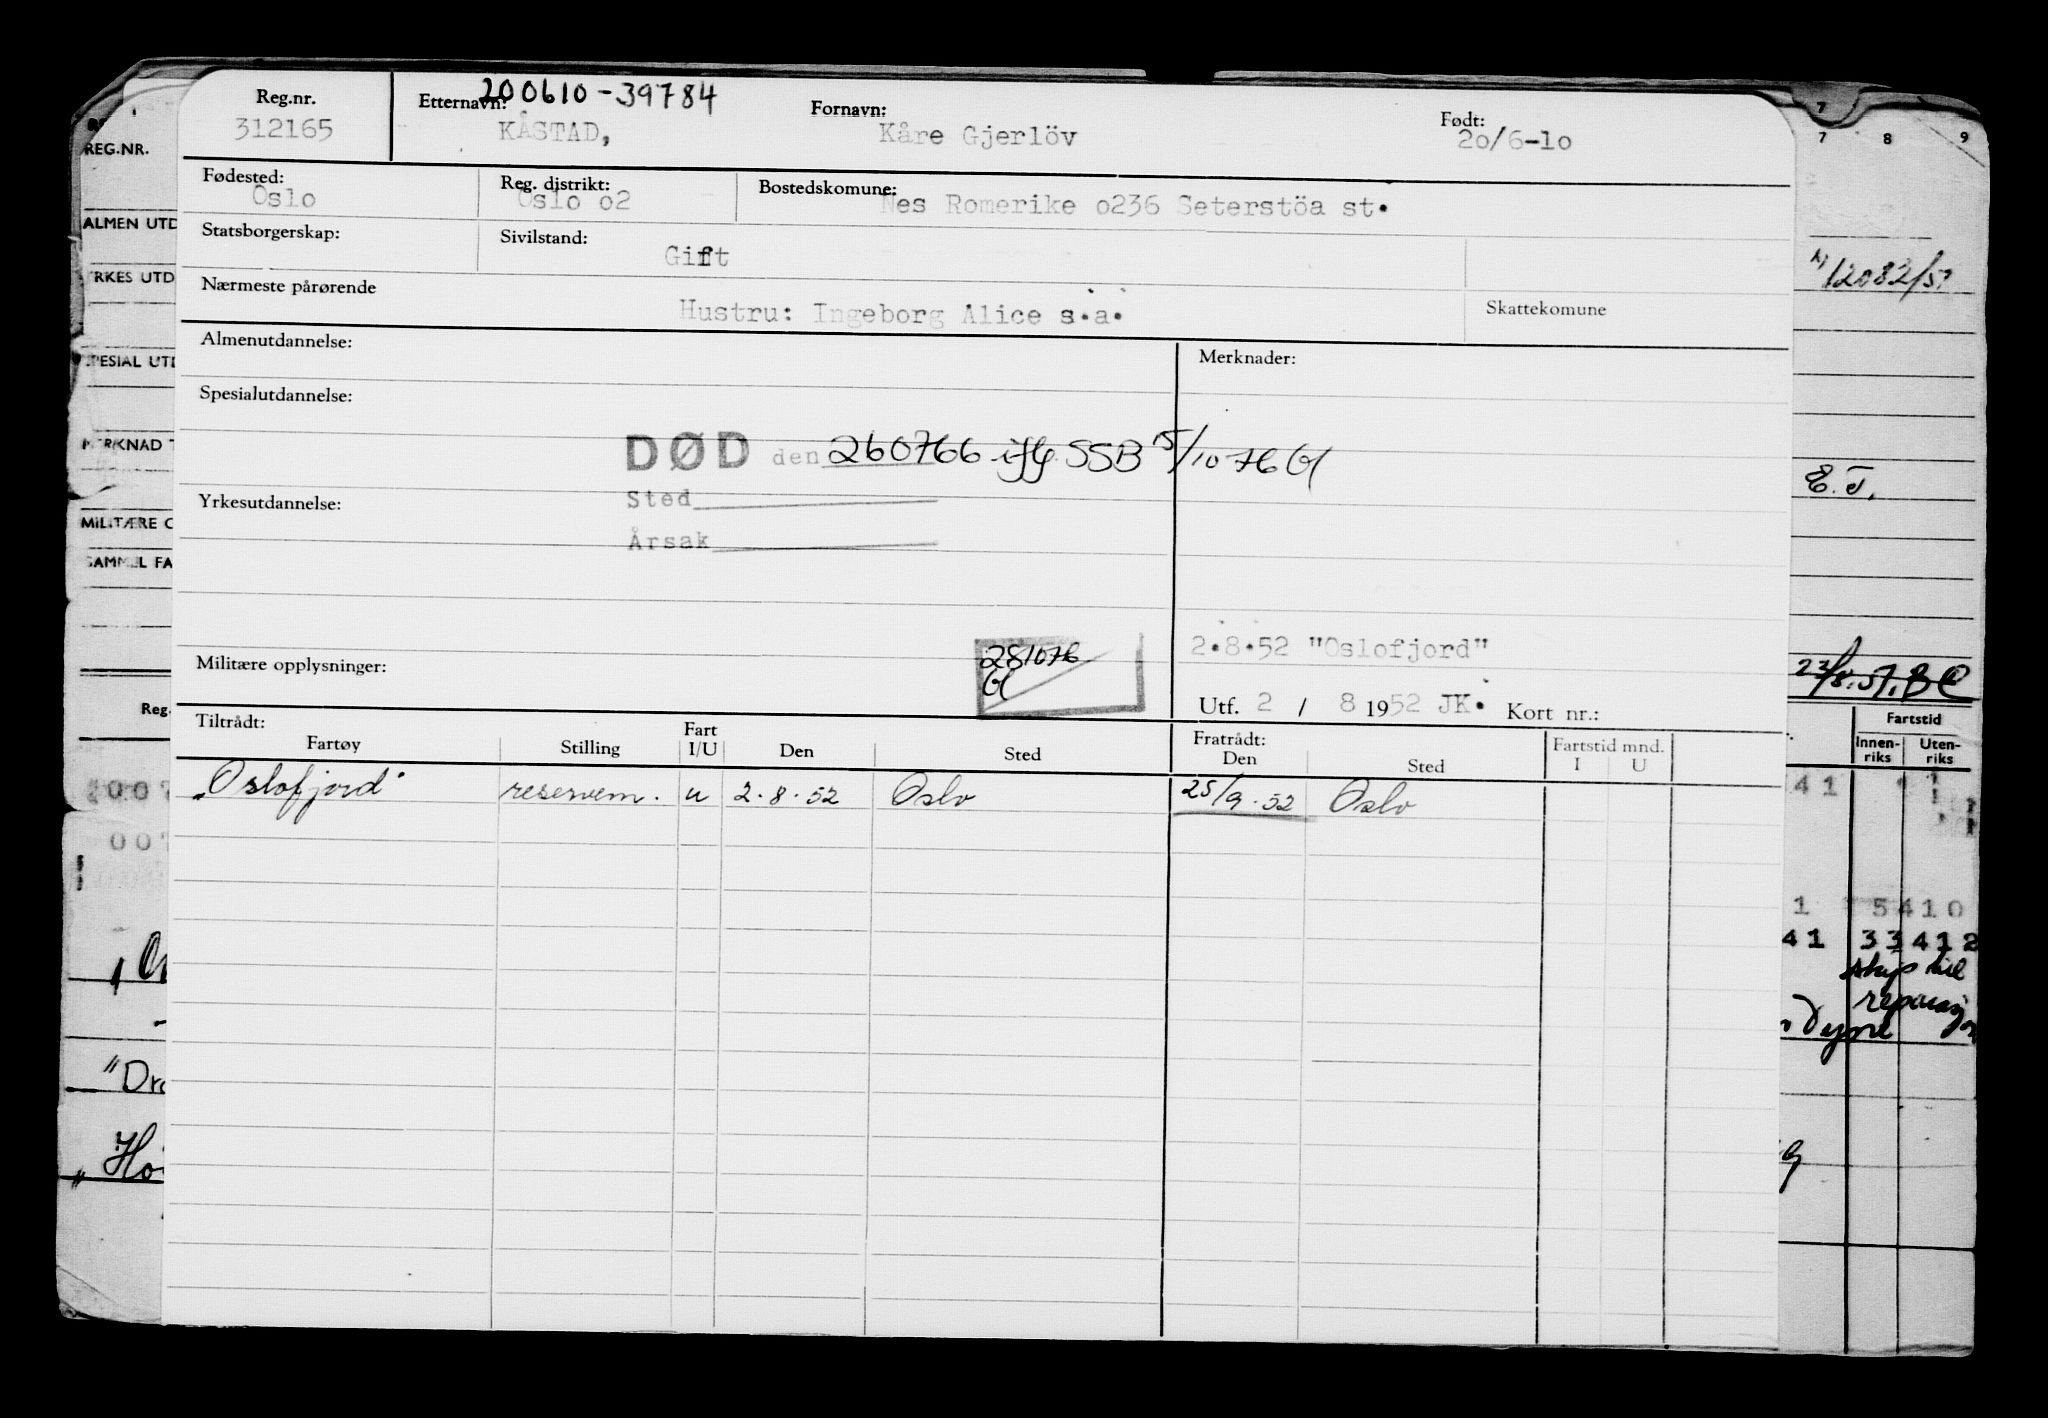 200610-39784
Reg.nr. Etternavn: Fornavn: Født:
312165 KÅSTAD, Kåre Gjerlöv 2o/6-1o
Fødested: Reg. distrikt: Bostedskomune:
Oslo Oslo o2 Nes Romerike o236 Seterstöa st.
Statsborgerskap: Sivilstand:
Gift
Nærmeste pårørende
Hustru: Ingeborg Alice s.a. Skattekomune
Almenutdannelse: Merknader:
Spesialutdannelse:
DØD den 260766 iflg. SSB 15/10 76
Sted
Yrkesutdannelse:
Årsak
2.8.52 "Oslofjord"
Militære opplysninger: 281076
Utf. 2 / 8 1952 JK. Kort nr.:
Tiltrådt: Fratrådt:
Fartøy Stilling Fart I/U Den Sted Den Sted Fartstid mnd. I U
"Oslofjord" reservem. u 2.8.52 Oslo 25/9.52 Oslo
REG.NR. 7 8 9
7
ALMEN UTD
YRKES UTD
12082/57
SPESIAL UTD
MERKNAD T
E.T.
MILITÆRE O
SAMMEL FA
23/8.57.
Reg. Fartstid
Innen-riks Uten-riks
007 41
007
1 5410
41 33412
skip til
reparasjon
"Dra
"Ho